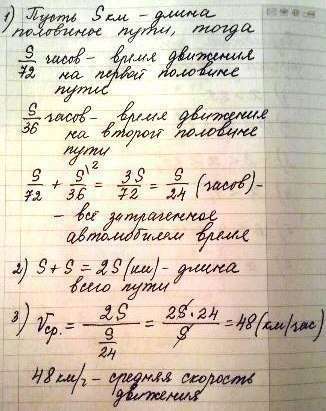 1) Пусть S км - длина
половины пути, тогда
S/72 часов - время движения
на первой половине
пути
S/36 часов - время движения
на второй половине
пути
S/72 + S/36 \2 = 3S/72 = S/24 (часов) -
- всё затраченное
автомобилем время
2) S + S = 2S (км) - длина
всего пути
3) Vср. = 2S / (S/24) = 2S · 24 / S = 48 (км/час)
48 км/ч - средняя скорость
движения